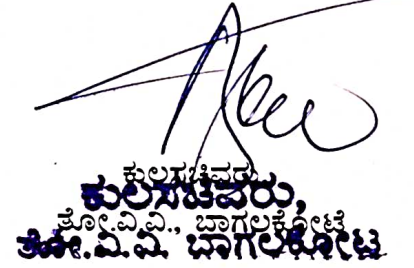 ಕುಲಸಚಿವರು
ಕುಲಸಚಿವರು,
ತೋ.ವಿ.ವಿ., ಬಾಗಲಕೋಟೆ
ತೋ.ವಿ.ವಿ. ಬಾಗಲಕೋಟ